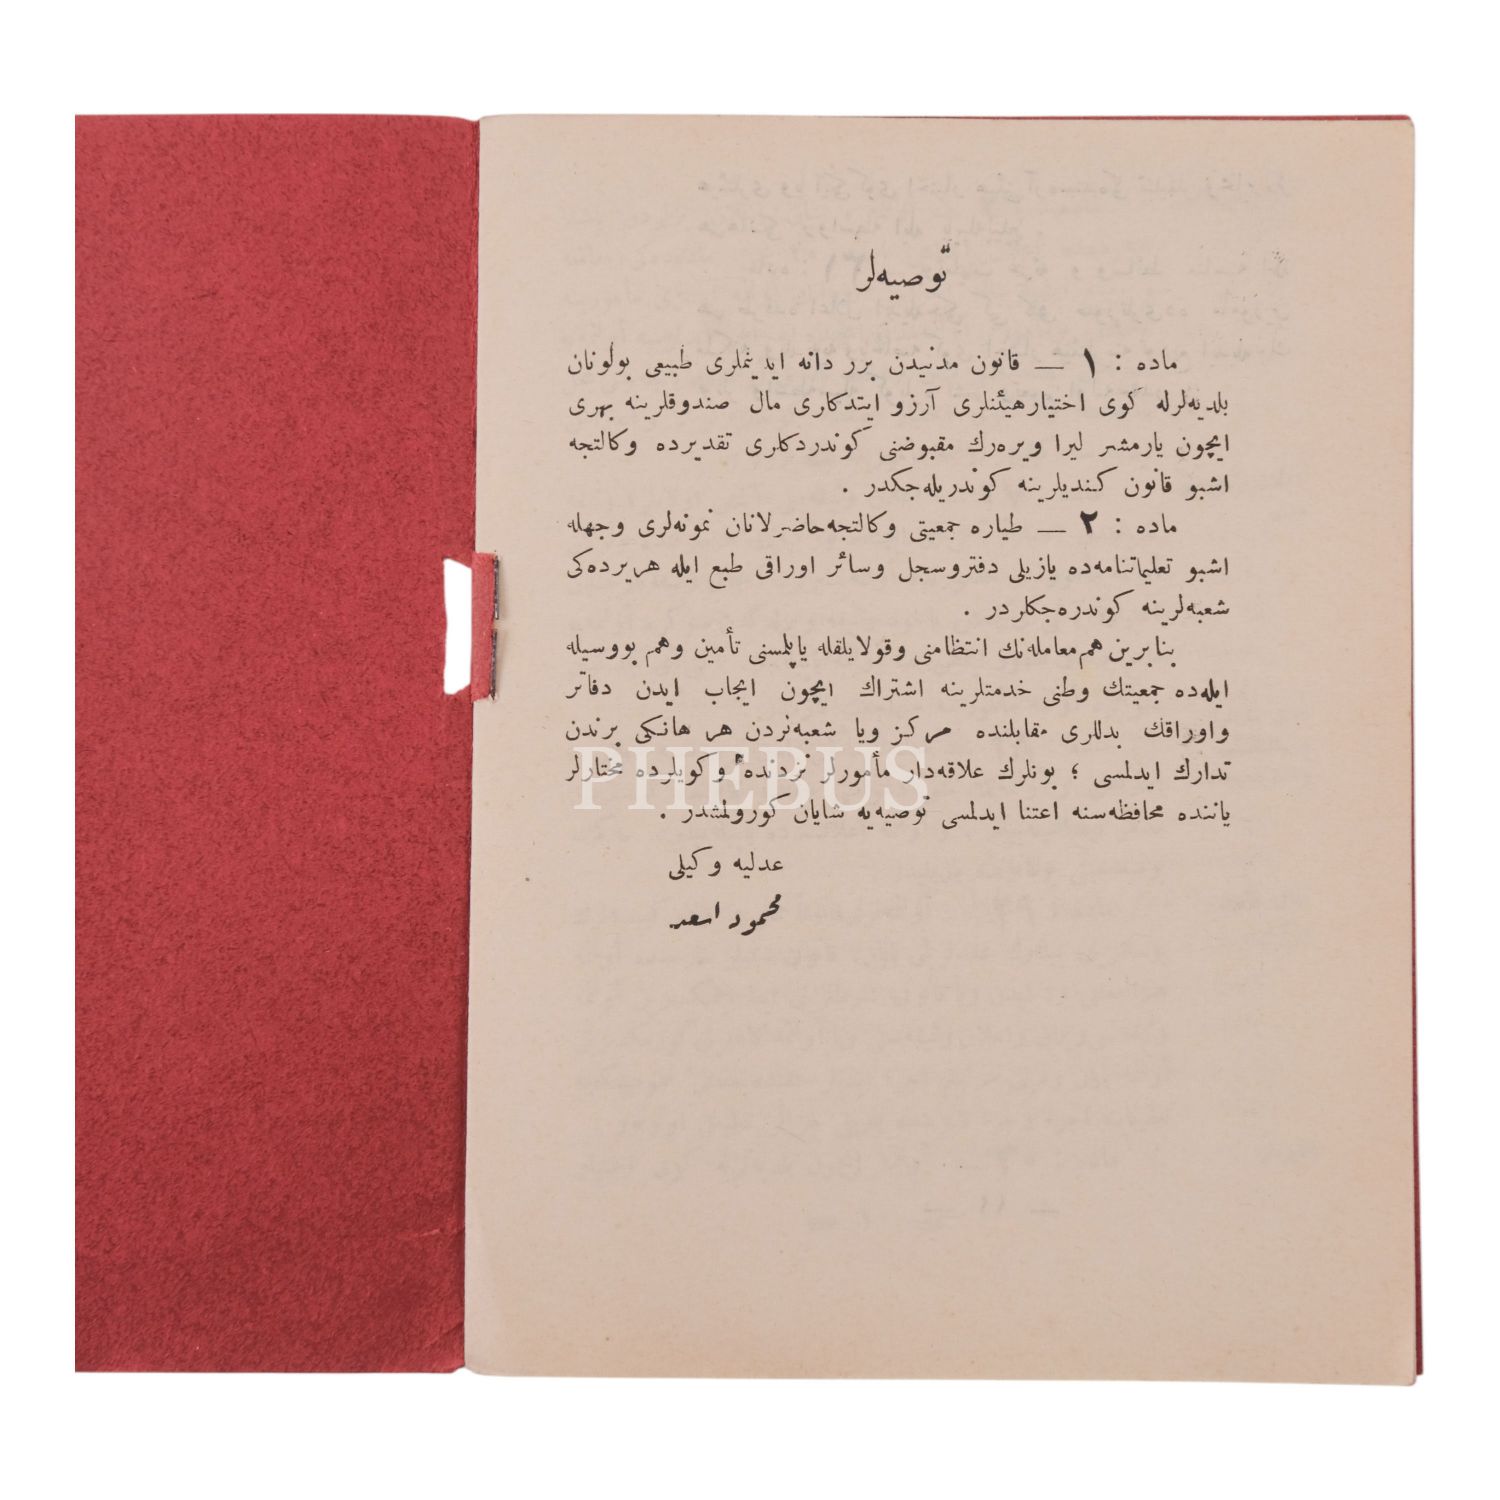 توصیه‌لر
ماده : ۱ — قانون مدنیدن برر دانه ایدینملری طبیعی بولونان
بلدیه‌لرله کوی اختیارهیئتلری آرزو ایتدکاری مال صندوقلرینه بهری
ایچون یارمشر لیرا ویره‌رك مقبوضنی کوندردکلری تقدیرده وکالتجه
اشبو قانون کندیلرینه کوندریله‌جکدر .
ماده : ۲ — طیاره جمعیتی وکالتجه‌حاضرلانان نمونه‌لری وجهله
اشبو تعلیماتنامه‌ده یازیلی دفتروسجل وسائر اوراقی طبع ایله هریرده‌کی
شعبه‌لرینه کوندره‌جکلردر .
بنابرین هم‌معامله‌نك انتظامنی وقولایلقله یاپلمسنی تأمین وهم بووسیله
ایله‌ده جمعیتك وطنی خدمتلرینه اشتراك ایچون ایجاب ایدن دفاتر
واوراقك بدللری مقابلنده مرکز ویا شعبه‌لردن هر هانکی برندن
تدارك ایدلمسی ؛ بونلرك علاقه‌دار مأمورلر نزدنده وکویلرده مختارلر
یاننده محافظه‌سنه اعتنا ایدلمسی توصیه‌یه شایان کورولمشدر .
عدلیه وکیلی
محمود اسعد
PHEBUS